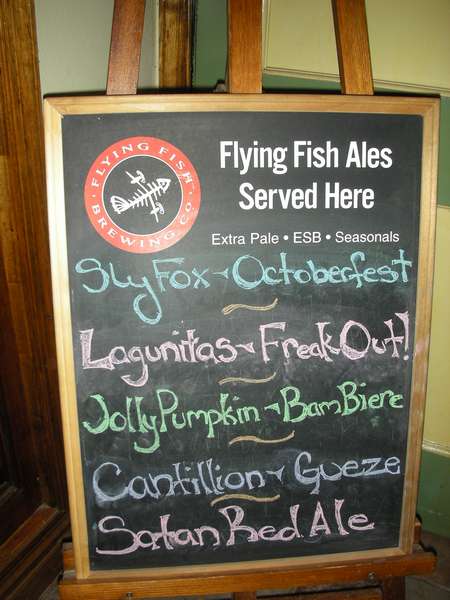 FLYING FISH
BREWING CO.
Flying Fish Ales
Served Here
Extra Pale • ESB • Seasonals
Sly Fox ~ Octoberfest
Lagunitas ~ Freak Out!
Jolly Pumpkin ~ Bam Biere
Cantillion ~ Gueze
Satan Red Ale